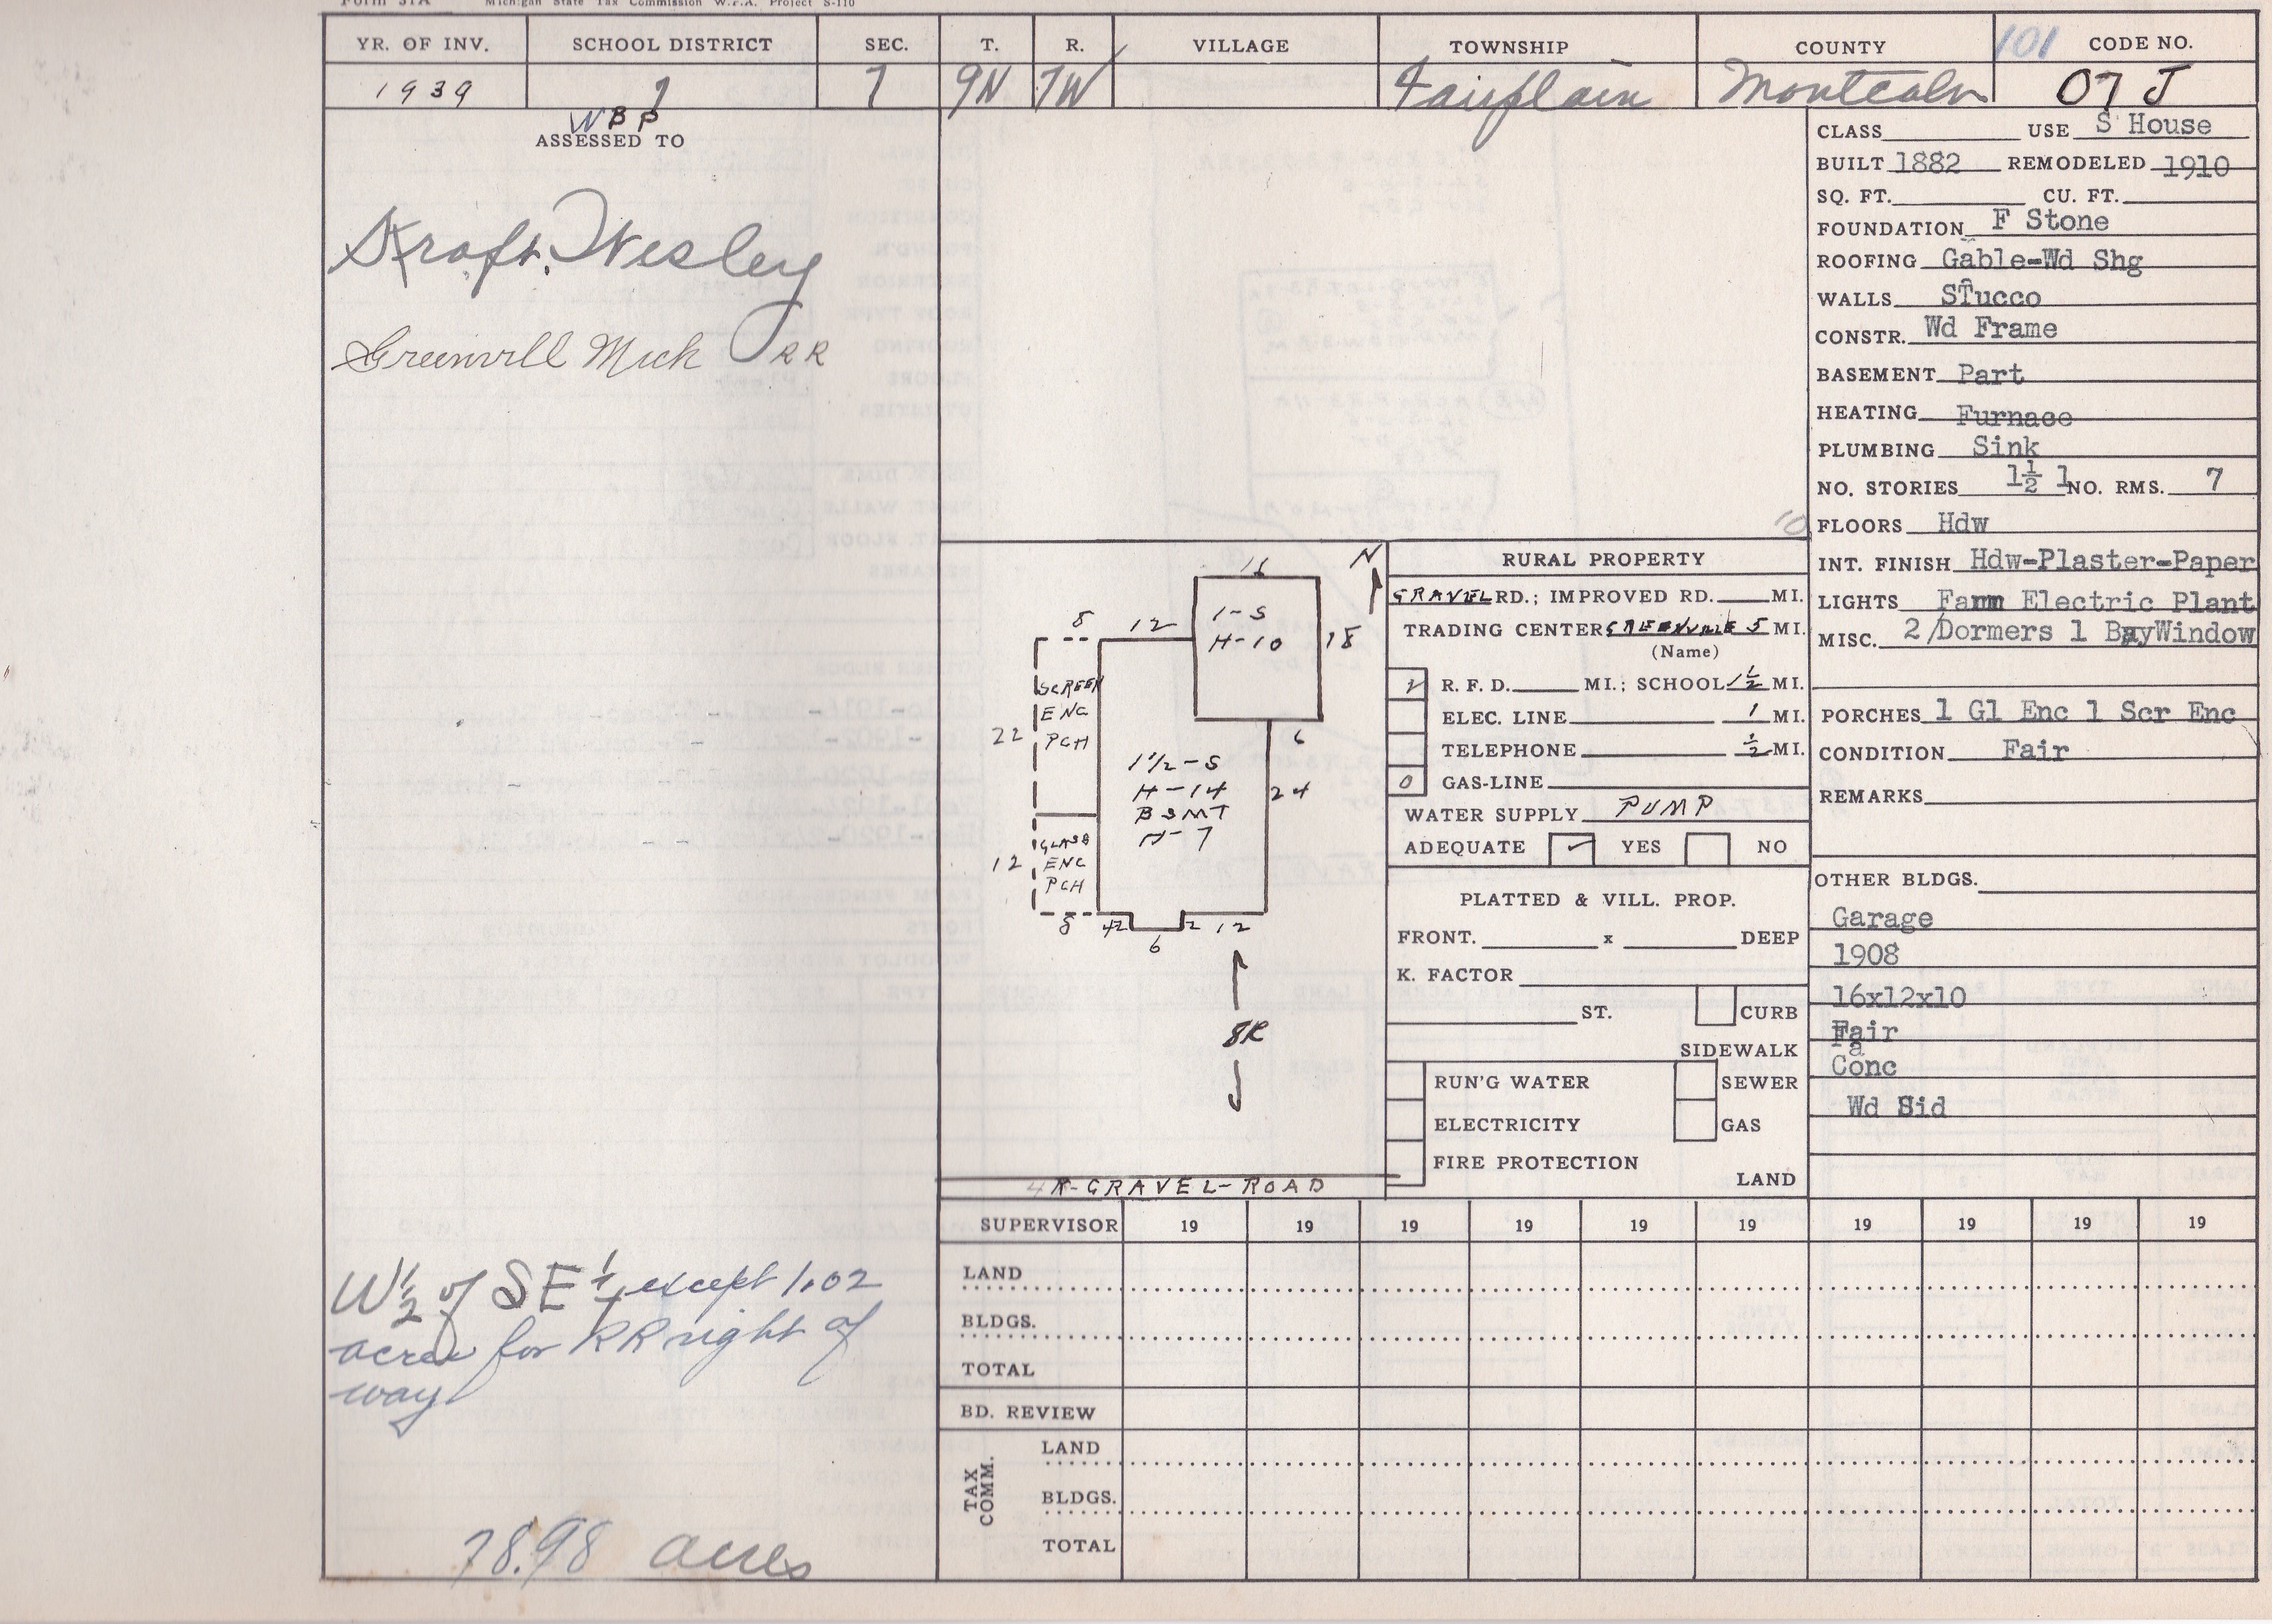 Form 31A Michigan State Tax Commission W.P.A. Project S-110
YR. OF INV. SCHOOL DISTRICT SEC. T. R. VILLAGE TOWNSHIP COUNTY 101 CODE NO.
1939 7 7 9N 7W Fairplain Montcalm 07 J
WBP
ASSESSED TO
Kraft. Wesley
Greenvill Mich RR
W½ of SE¼ except 1.02
acres for RR right of
way
78.98 acres
16
N
1-S
H-10
18
8
12
SCREEN
ENC
PCH
22
6
1½-S
H-14
BSMT
H-7
24
GLASS
ENC
PCH
12
8 4 2 6 2 12
8R
4R-GRAVEL-ROAD
10
RURAL PROPERTY
GRAVEL RD.; IMPROVED RD. MI.
TRADING CENTER GREENVILLE 5 MI.
(Name)
R. F. D. MI.; SCHOOL 1½ MI.
ELEC. LINE 1 MI.
TELEPHONE ½ MI.
0 GAS-LINE
WATER SUPPLY PUMP
ADEQUATE ✓ YES NO
PLATTED & VILL. PROP.
FRONT. x DEEP
K. FACTOR
ST. CURB
SIDEWALK
RUN'G WATER SEWER
ELECTRICITY GAS
FIRE PROTECTION
LAND
CLASS USE S House
BUILT 1882 REMODELED 1910
SQ. FT. CU. FT.
FOUNDATION F Stone
ROOFING Gable-Wd Shg
WALLS STucco
CONSTR. Wd Frame
BASEMENT Part
HEATING Furnace
PLUMBING Sink
NO. STORIES 1½ 1 NO. RMS. 7
FLOORS Hdw
INT. FINISH Hdw-Plaster-Paper
LIGHTS Farm Electric Plant
MISC. 2/Dormers 1 BayWindow
PORCHES 1 Gl Enc 1 Scr Enc
CONDITION Fair
REMARKS
OTHER BLDGS.
Garage
1908
16x12x10
Fair
a
Conc
Wd Sid
SUPERVISOR 19 19 19 19 19 19 19 19 19 19
LAND
BLDGS.
TOTAL
BD. REVIEW
TAX COMM.
LAND
BLDGS.
TOTAL